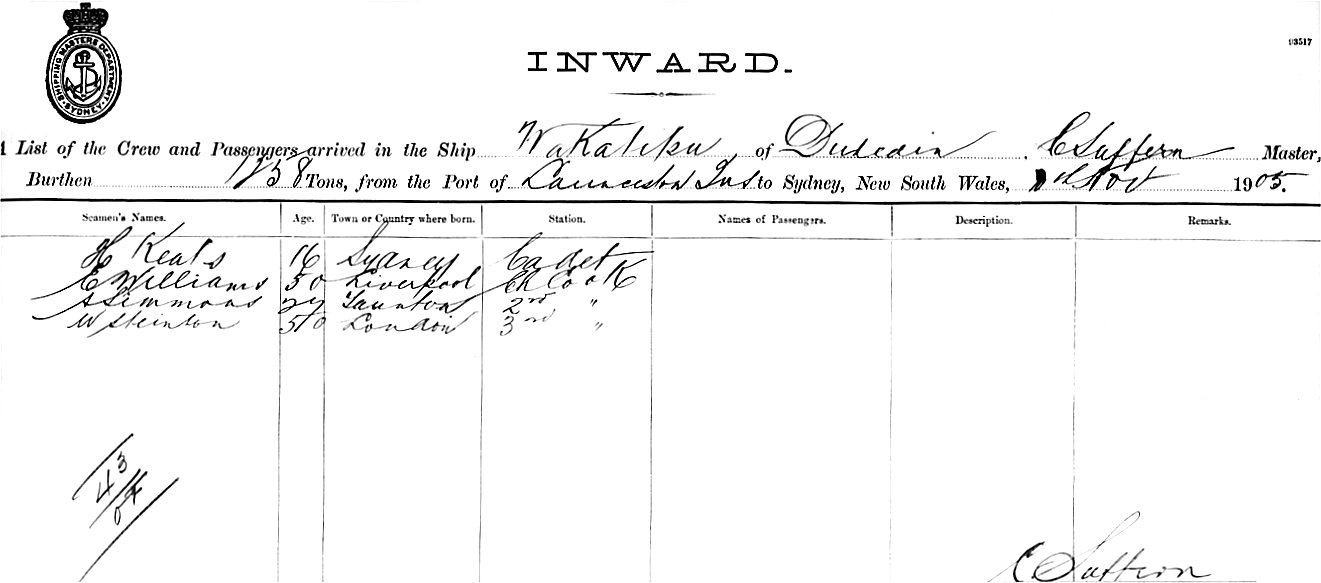 SHIPPING MASTERS DEPARTMENT SYDNEY
93517
INWARD.
List of the Crew and Passengers arrived in the Ship Wakatipu of Dunedin. C Suffern Master,
Burthen 1258 Tons, from the Port of Launceston Tas to Sydney, New South Wales, Nov 1905.
Seamen's Names. Age. Town or Country where born. Station. Names of Passengers. Description. Remarks.
H Keats 16 Sydney Cadet
E Williams 50 Liverpool Ch Cook
A Simmons 27 Taunton 2nd "
W Steinton 50 London 3rd "
43
C Suffern